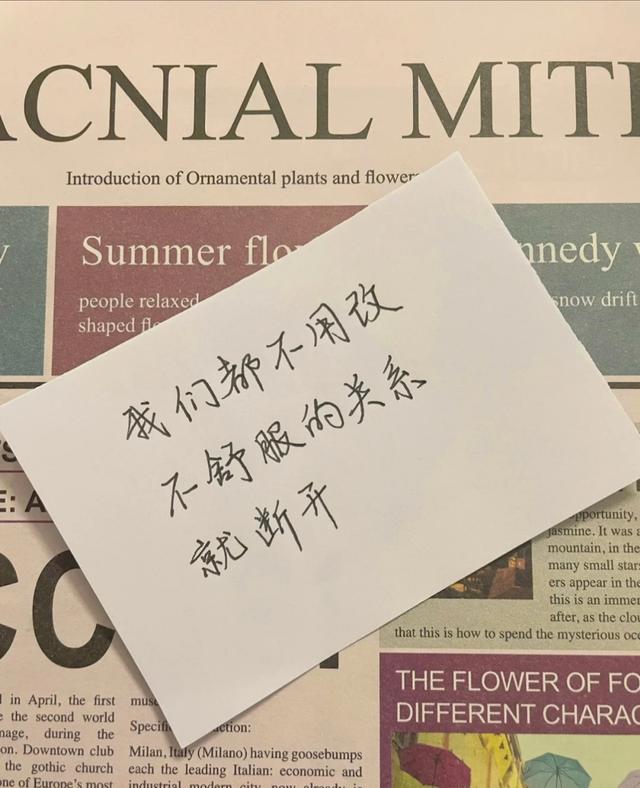 ACNIAL MIT
Introduction of Ornamental plants and flower
Summer flo
nnedy
people relaxed
shaped
snow drift
我们都不用改
不舒服的关系
就断开
E: A
pportunity,
jasmine. It was a
mountain, in the
many small stars
ers appear in the
this is an immer
after, as the clou
that this is how to spend the mysterious occ
THE FLOWER OF FO
DIFFERENT CHARAC
in April, the first
the second world
mage, during the
on. Downtown club
the gothic church
one of Europe's most
muse
Specifi ction:
Milan, Italy (Milano) having goosebumps
each the leading Italian: economic and
industrial modern city, now already is